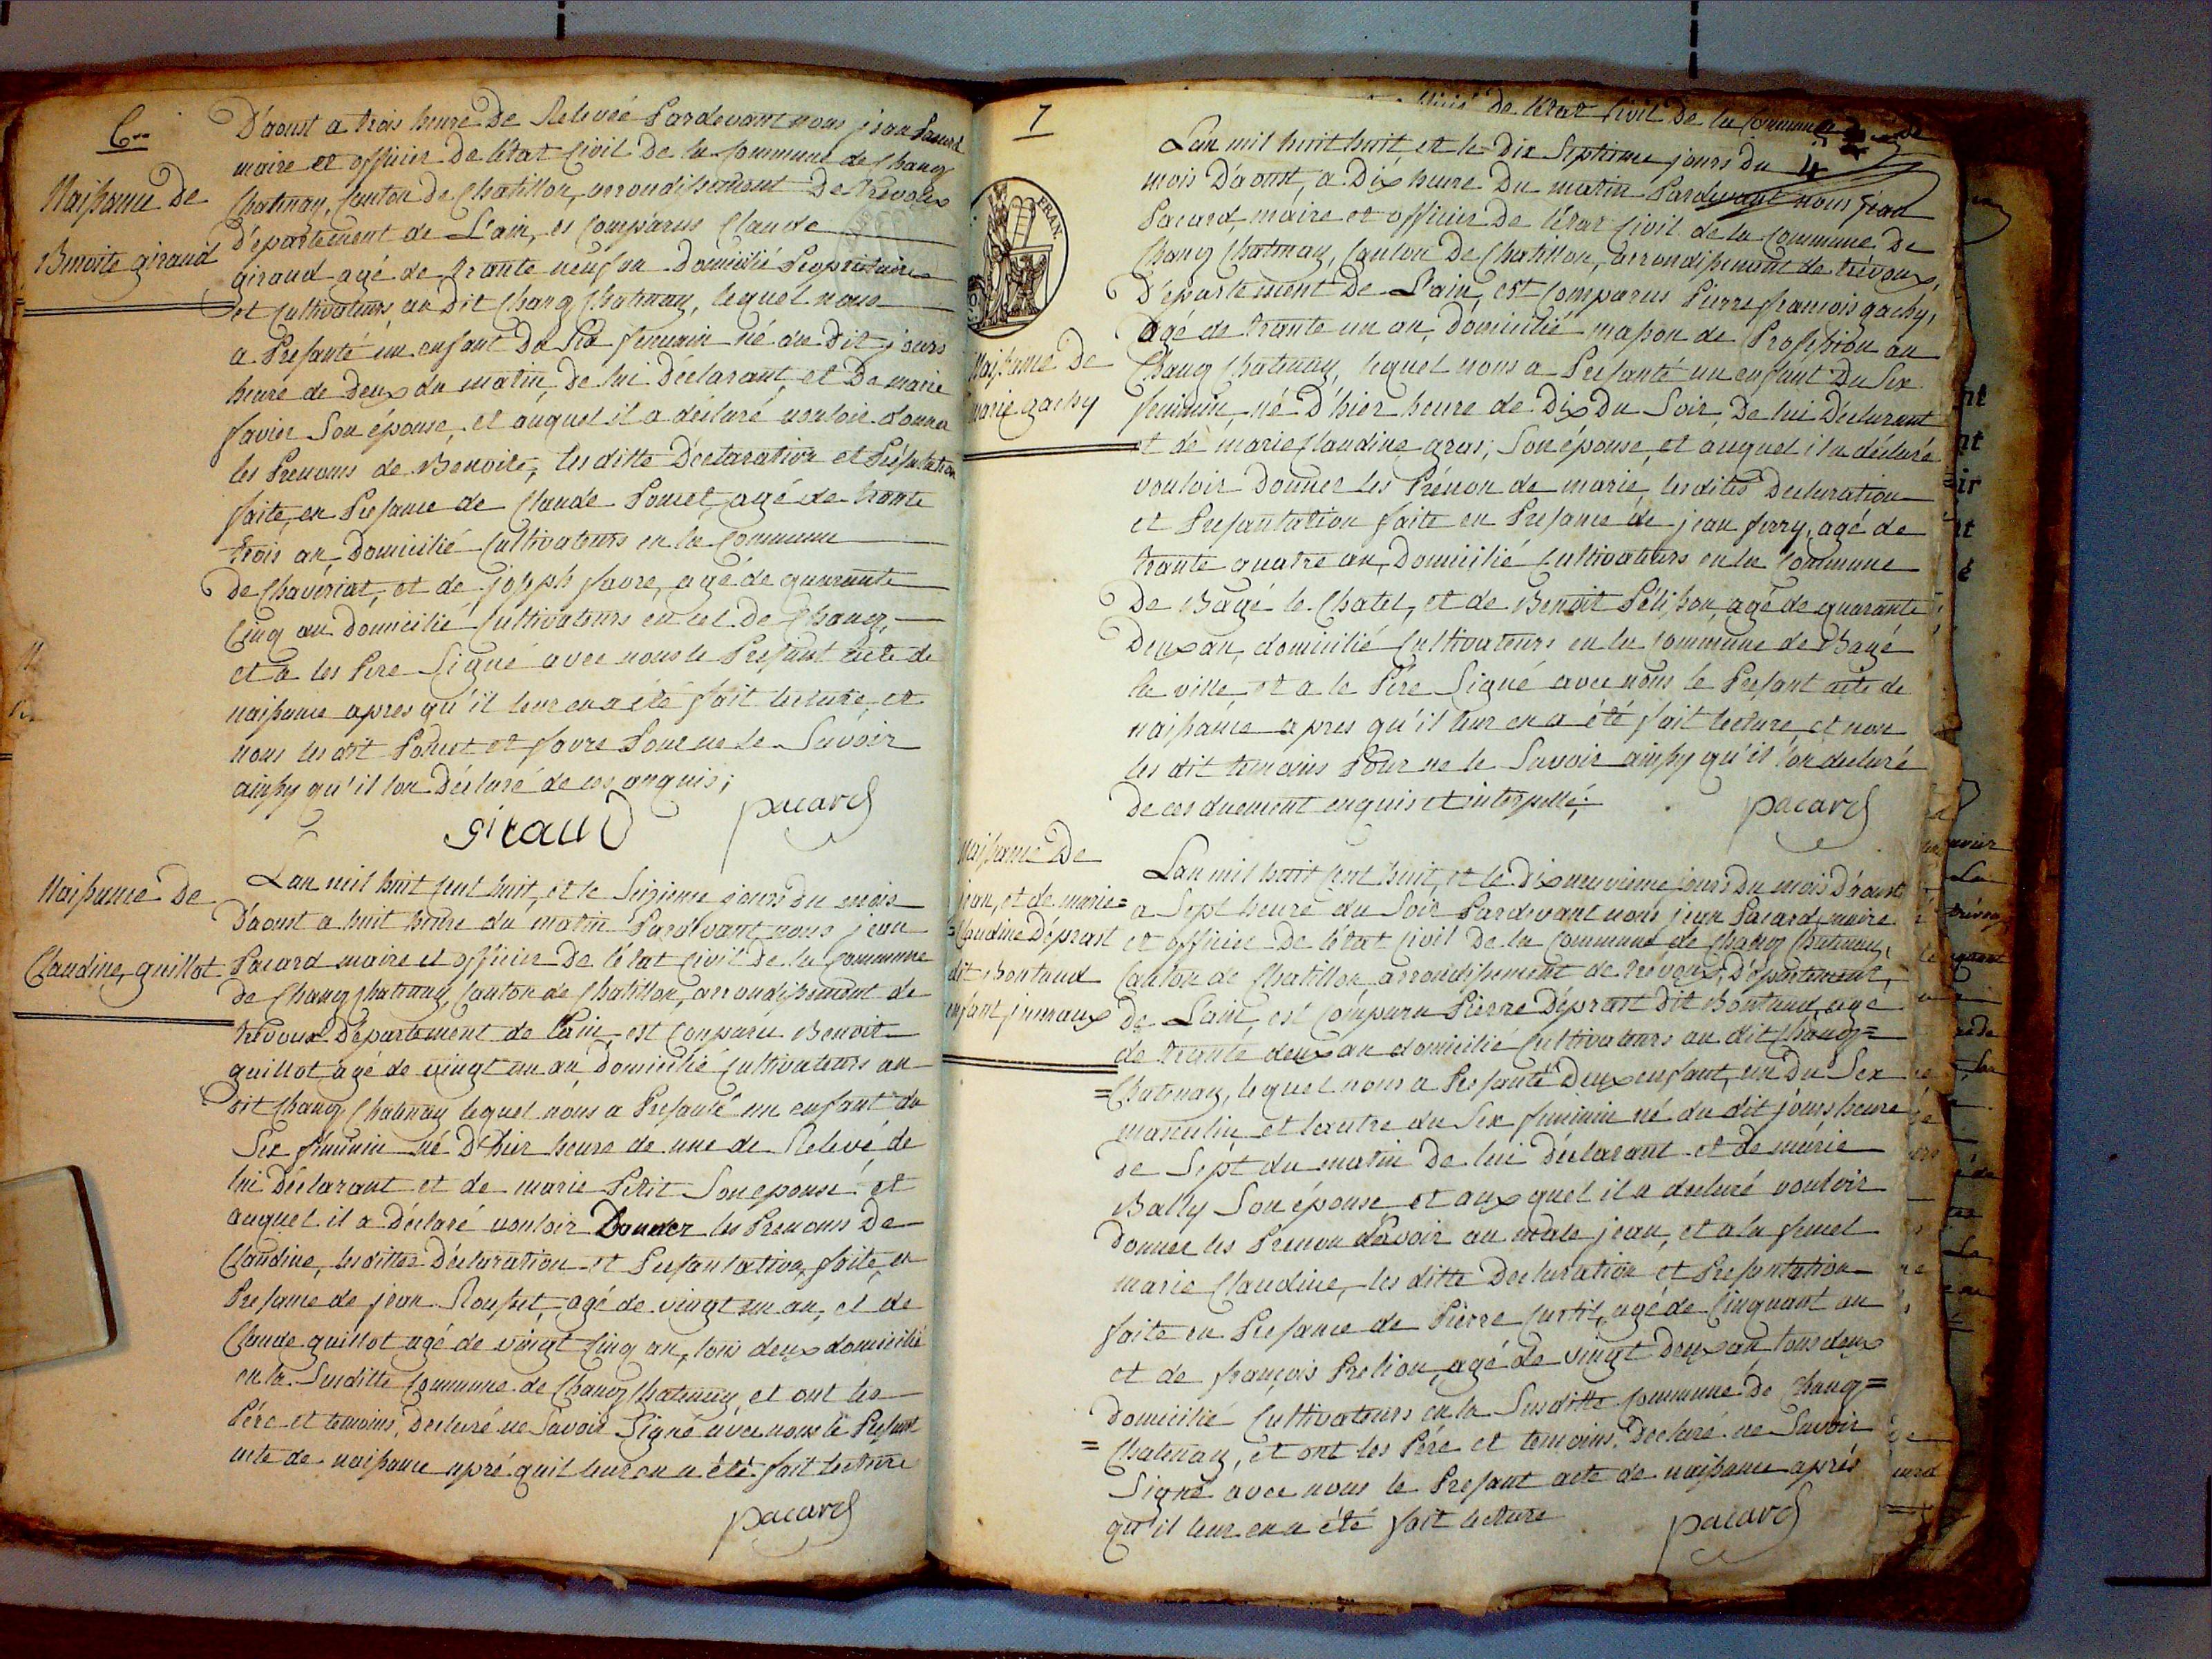 6me
Naissance de
Benoite giraud
D'aoust a trois heure De Relevée Pardevant nous jean Pacard
maire et officier De létat Civil De la Commune de Chang
Chatenay, Canton de Chatillon, arrondissement De trévoux
Département de L'ain, es Comparus Claude
giraud agé de trante neuf an Domicilié Propriétaire
et Cultivateurs au Dit Chang Chatenay, lequel nous
a Presanté un enfant Du Sex feminin né du Dit jours
heure de Deux du matin, de lui Déclarant et De marie
favier Son épouse, et auquel il a déclaré vouloir donner
les Prenoms de Benoite, les ditte Déclaration et Présantation
faite, en Presance de Claude Poncet, agé de trante
trois an Domicilié Cultivateurs en la Commune
de Chaveriat, et de joseph favre, agé de quarante
Cinq an domicilié Cultivateurs en cel de Chang,
et a les Pere Signé avec nous le Presant acte de
naissance apres qu'il leur en a été fait lecture, et
nous les dit Poncet et favre Pour ne le Savoir
ainsy qu'il l'on Déclaré de ces enquis;
giraud pacard
Naissance de
Claudine guillot
Lan mil huit Cent huit, et le Sizieme jours du mois
D'aoust a huit heure du matin Pardevant nous jean
Pacard maire et officier De l'état Civil De la Commune
de Chang Chatenay, Canton de Chatillon, arrondissement de
trévoux Département de Lain, est Comparu Benoit
guillot, agé de vingt un an Domicilié Cultivateurs au
dit Chang Chatenay lequel nous a Presanté un enfant du
Sex féminin né D'hier heure de une de Relevé, de
lui Déclarant et de marie Petit Son epouse et
auquel il a Déclaré vouloir Donner les Prenoms De
Claudine, les dittes Déclaration et Presantation faite, en
Presance de jean Rousset, agé de vingt un an, et de
Claude guillot agé de vingt Cinq an, tous deux domicilié
en la Susditte Commune de Chang Chatenay, et ont les
Pére et temoins, Declaré ne Savoir Signé avec nous le Presant
acte de naissance apré quil leur en a été fait lecture
pacard
7
FRAN.
Naissance De
marie gachy
de létat Civil De la Commune
4
Lan mil huit huit, et le Dix Septieme jours du
mois D'aoust, a Dix heure Du matin Pardevant nous jean
Pacard, maire et officier de l'état Civil de la Commune De
Chang Chatenay, Canton De Chatillon, arrondissement de trévoux,
Département De L'ain, est Comparus Pierre francois gachy,
agé de trante un an, Domicilié masson de Profession au
Chang Chatenay, lequel nous a Presanté un enfant Du Sex
feminin, né D'hier heure de Dix Du Soir, De lui Déclarant
et de marie Claudine gras, Son épouse, et auquel il a déclaré
vouloir Donner les Prénon de marie, les dites Declaration
et Presantation faite en Presance de jean ferry, agé de
trante quatre an, Domicilié Cultivateurs en la Commune
De Bagé le Chatel, et de Benoit Pélisson, agé de quarante
Deux an, domicilié Cultivateurs en la Commune de Bagé
la ville, et a le Pére Signé avec nous le Presant acte de
naissance apres qu'il leur en a été fait lecture, et non
les dit temoins Pour ne le Savoir ainsy qu'il l'on declaré
de ces duement enquis et interpellé;
pacard
Naissance De
jean, et de marie=
=Claudine Déprast
dit Bontaud
enfant jumeaux
Lan mil huit Cent huit, et le Dix neuvieme jours Du mois D'aoust
a Sept heure du Soir Pardevant nous jean Pacard, maire
et officier De l'état Civil De la Commune de Chang Chatenay,
Canton de Chatillon arrondissement de trévoux, Département
de Lain, est Comparu Pierre Déprast Dit Bontaud, agé
de trante deux an domicilié Cultivateurs au dit Chang=
=Chatenay, lequel nous a Presanté Deux enfant, un Du Sex
masculin et lautre du Sex feminin né du dit jours, heure
de Sept du matin de lui déclarant et de marie
Bally Son épouse et aux quel il a declaré vouloir
donner les Prenon davoir au male jean, et a la femel
marie Claudine, les ditte Declaration et Presantation
faite en Presance de Pierre Curtil, agé de Cinquant an
et de françois Prelion, agé de vingt Deux an tous deux
domicilié Cultivateurs en la Susditte Commune de Chang=
=Chatenay, et ont les Pére et temoins Declaré ne Savoir
Signé avec nous le Presant acte de naissance aprés
qu'il leur en a été fait lecture
pacard